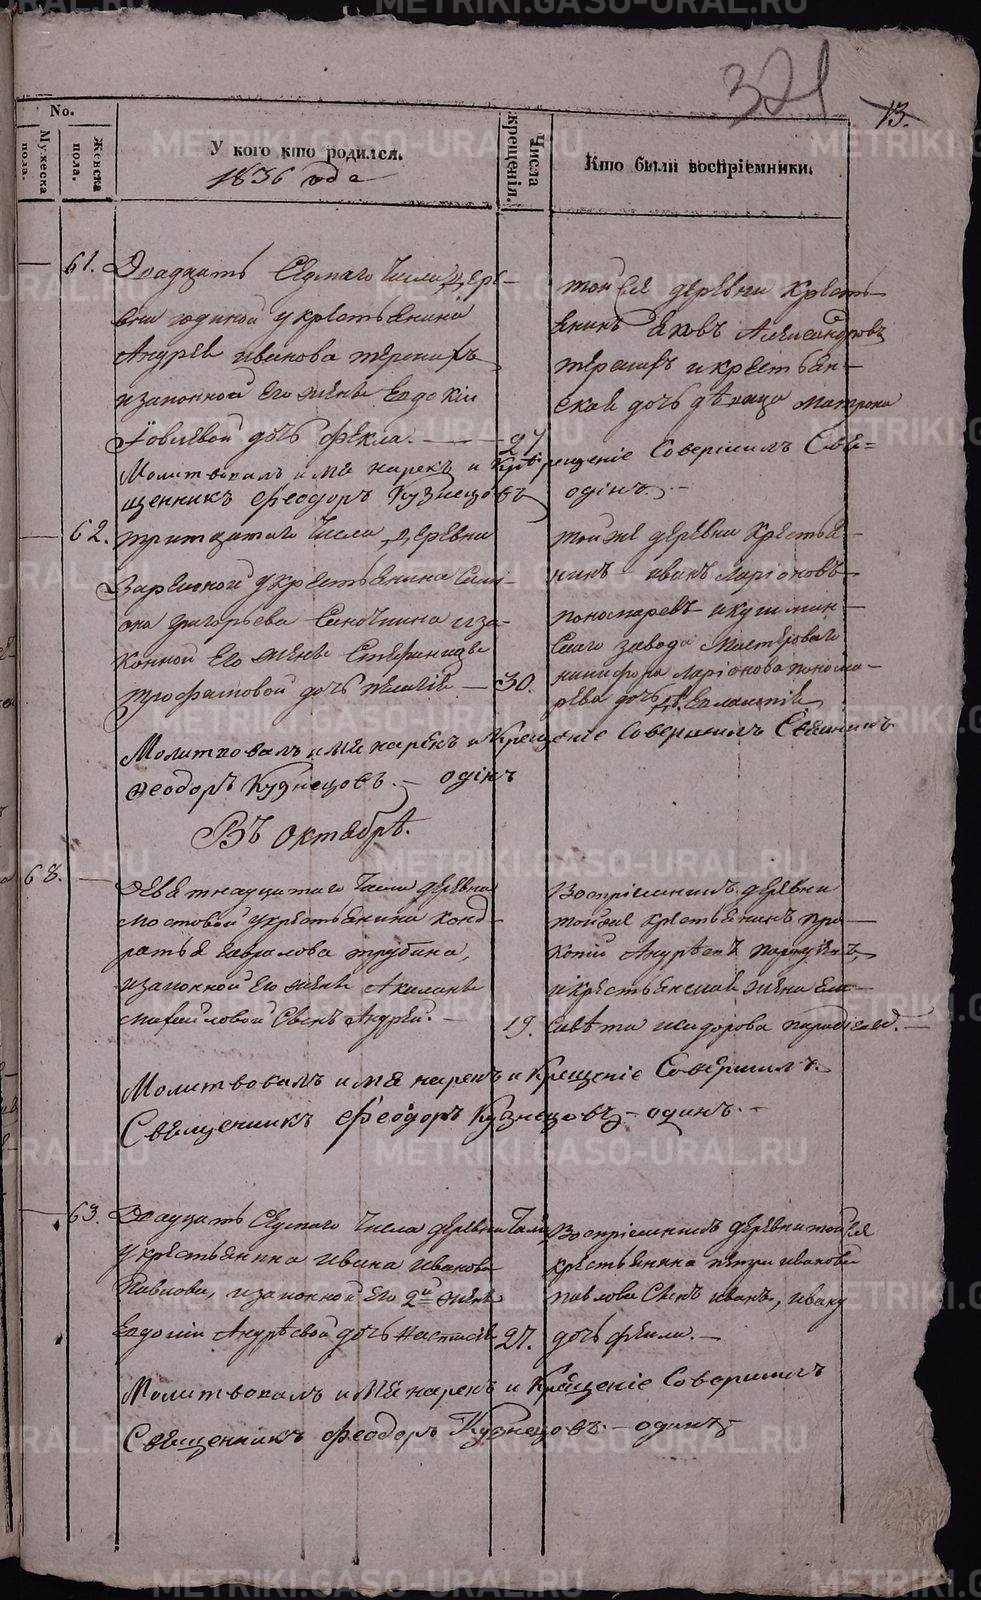 321
13.
No.
Мужеска пола.
Женска пола.
У кого кто родился.
1836 года
Числа крещенія.
Кто были воспріемники.
61. Двадцать седмаго числа дере-
вни у крестьянина
Андрея Иванова
и законной его жены Евдокіи
дочь Фекла. — 27
тойже деревни кресть-
янинъ Яковъ Александровъ
и крестьян-
ская дочь дѣвица Матрона
Молитвовалъ имя нарекъ и крещеніе совершилъ Свя-
щенникъ Феодоръ Кузнецовъ одинъ. —
62. Тритцатаго числа деревни
Зарѣчной у крестьянина Сим-
она Григорьева и за-
конной его жены
Трофимовой дочь Пелагія — 30.
тойже деревни крестья-
нинъ Иванъ Ларіоновъ
Пономаревъ и кушвин-
скаго завода мастероваго
Никифора Ларіонова Понома-
рева дочь
Молитвовалъ имя нарекъ и крещеніе совершилъ Священникъ
Феодоръ Кузнецовъ. — одинъ
Въ Октябрѣ.
68. Девятнадцатаго числа деревни
Мостовой у крестьянина Конд-
ратья Гаврилова Трубина,
и законной его жены Акилины
Михайловой сынъ Андрей. — 19.
Воспріемникъ деревни
тойже крестьянинъ Про-
копій Андрѣевъ
и крестьянская жена Ели-
савѣта Исидорова
Молитвовалъ имя нарекъ и крещеніе совершилъ
Священникъ Феодоръ Кузнецовъ — одинъ. —
63. Двадцать седмаго числа деревни
у крестьянина Ивана Иванова
Павлова, и законной его 2й жены
Евдокіи Андрѣевой дочь Настасія 27.
Воспріемникъ деревни тойже
крестьянина Петра Иванова
Павлова сынъ Иванъ,
дочь Фекла. —
Молитвовалъ имя нарекъ и крещеніе совершилъ
Священникъ Феодоръ Кузнецовъ. — одинъ
METRIKI.GASO-URAL.RU